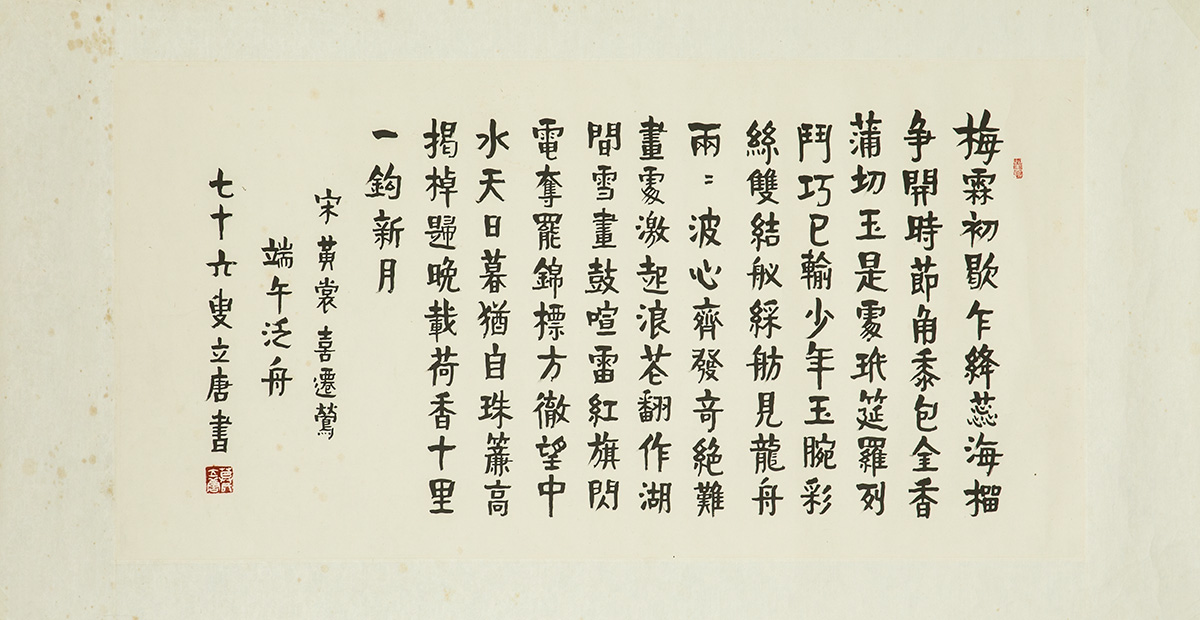 梅霖初歇乍絳蕊海榴
争開時節角黍包金香
蒲切玉是處玳筵羅列
鬥巧已輸少年玉腕彩
絲雙結舣綵舫見龍舟
兩〻波心齊發奇絶難
畫處激起浪花翻作湖
間雪畫鼓喧雷紅旗閃
電奪罷錦標方徹望中
水天日暮猶自珠簾高
揭棹歸晚載荷香十里
一鈎新月
宋黃裳喜遷鶯
端午泛舟
七十六叟立唐書